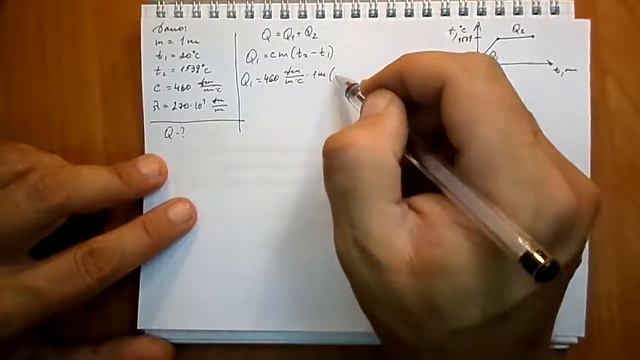 Дано:
m = 1 кг
t₁ = 20°C
t₂ = 1539°C
c = 460 Дж/кг°C
λ = 270·10³ Дж/кг
Q - ?
Q = Q₁ + Q₂
Q₁ = cm(t₂ - t₁)
Q₁ = 460 Дж/кг°C · 1 кг (
t,°C
1539
Q₂
Q₁